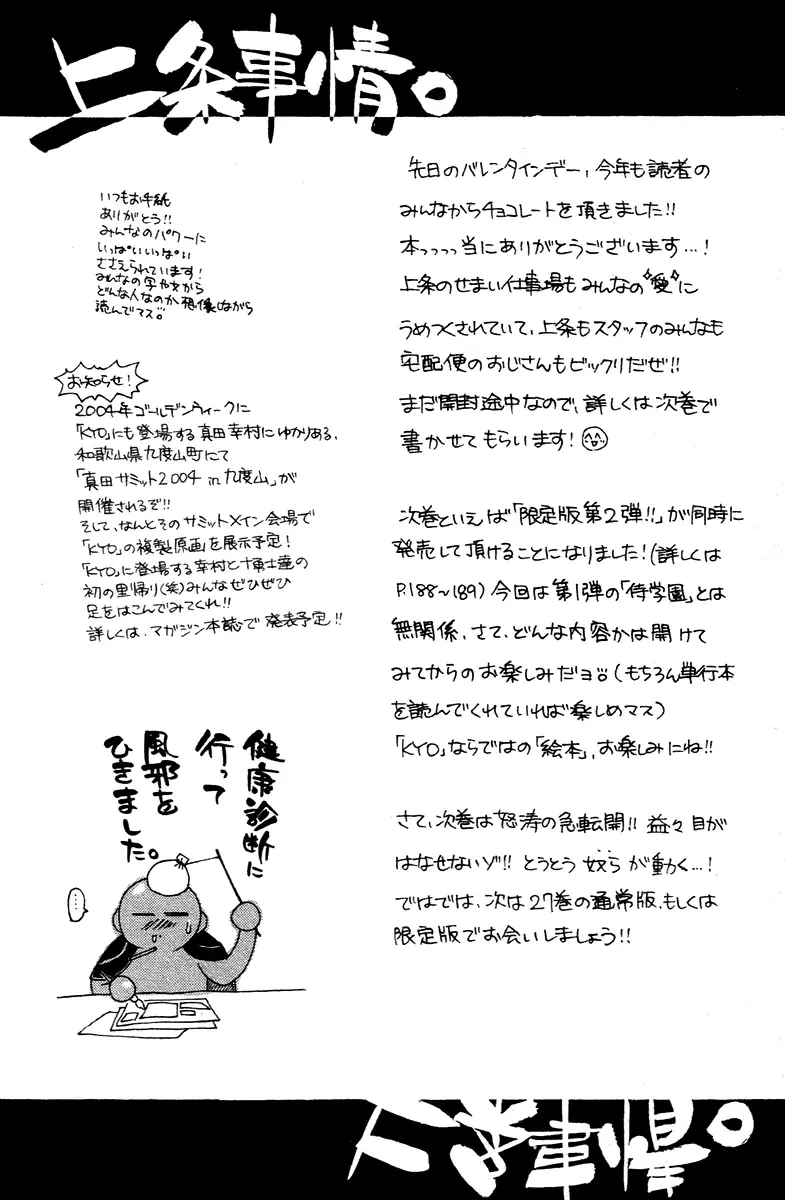 上条事情。
先日のバレンタインデー、今年も読者の
みんなからチョコレートを頂きました!!
本っっっっ当にありがとうございます…!
上条のせまい仕事場もみんなの"愛"に
うめつくされていて、上条もスタッフのみんなも
宅配便のおじさんもビックリだぜ!!
まだ開封途中なので、詳しくは次巻で
書かせてもらいます!
次巻といえば「限定版第2弾!!」が同時に
発売して頂けることになりました!(詳しくは
P.188~189)今回は第1弾の「侍学園」とは
無関係。さて、どんな内容かは開けて
みてからのお楽しみだヨ(もちろん単行本
を読んでくれていれば楽しめマス)
「KYO」ならではの「絵本」、お楽しみにね!!
さて、次巻は怒涛の急転開!! 益々目が
はなせないゾ!! とうとう奴らが動く…!
ではでは、次は27巻の通常版、もしくは
限定版でお会いしましょう!!
いつもお手紙
ありがとう!!
みんなのパワーに
いっぱいいっぱい
ささえられています!
みんなの字や文から
どんな人なのか想像しながら
読んでマス
お知らせ!
2004年ゴールデンウィークに
「KYO」にも登場する真田幸村にゆかりある、
和歌山県九度山町にて
「真田サミット2004 in 九度山」が
開催されるぞ!!
そして、なんとそのサミットメイン会場で
「KYO」の複製原画を展示予定!
「KYO」に登場する幸村と十勇士達の
初の里帰り(笑)みんなぜひぜひ
足をはこんでみてくれ!!
詳しくは、マガジン本誌で発表予定!!
健康診断に
行って
風邪を
ひきました。
…。
上条事情。